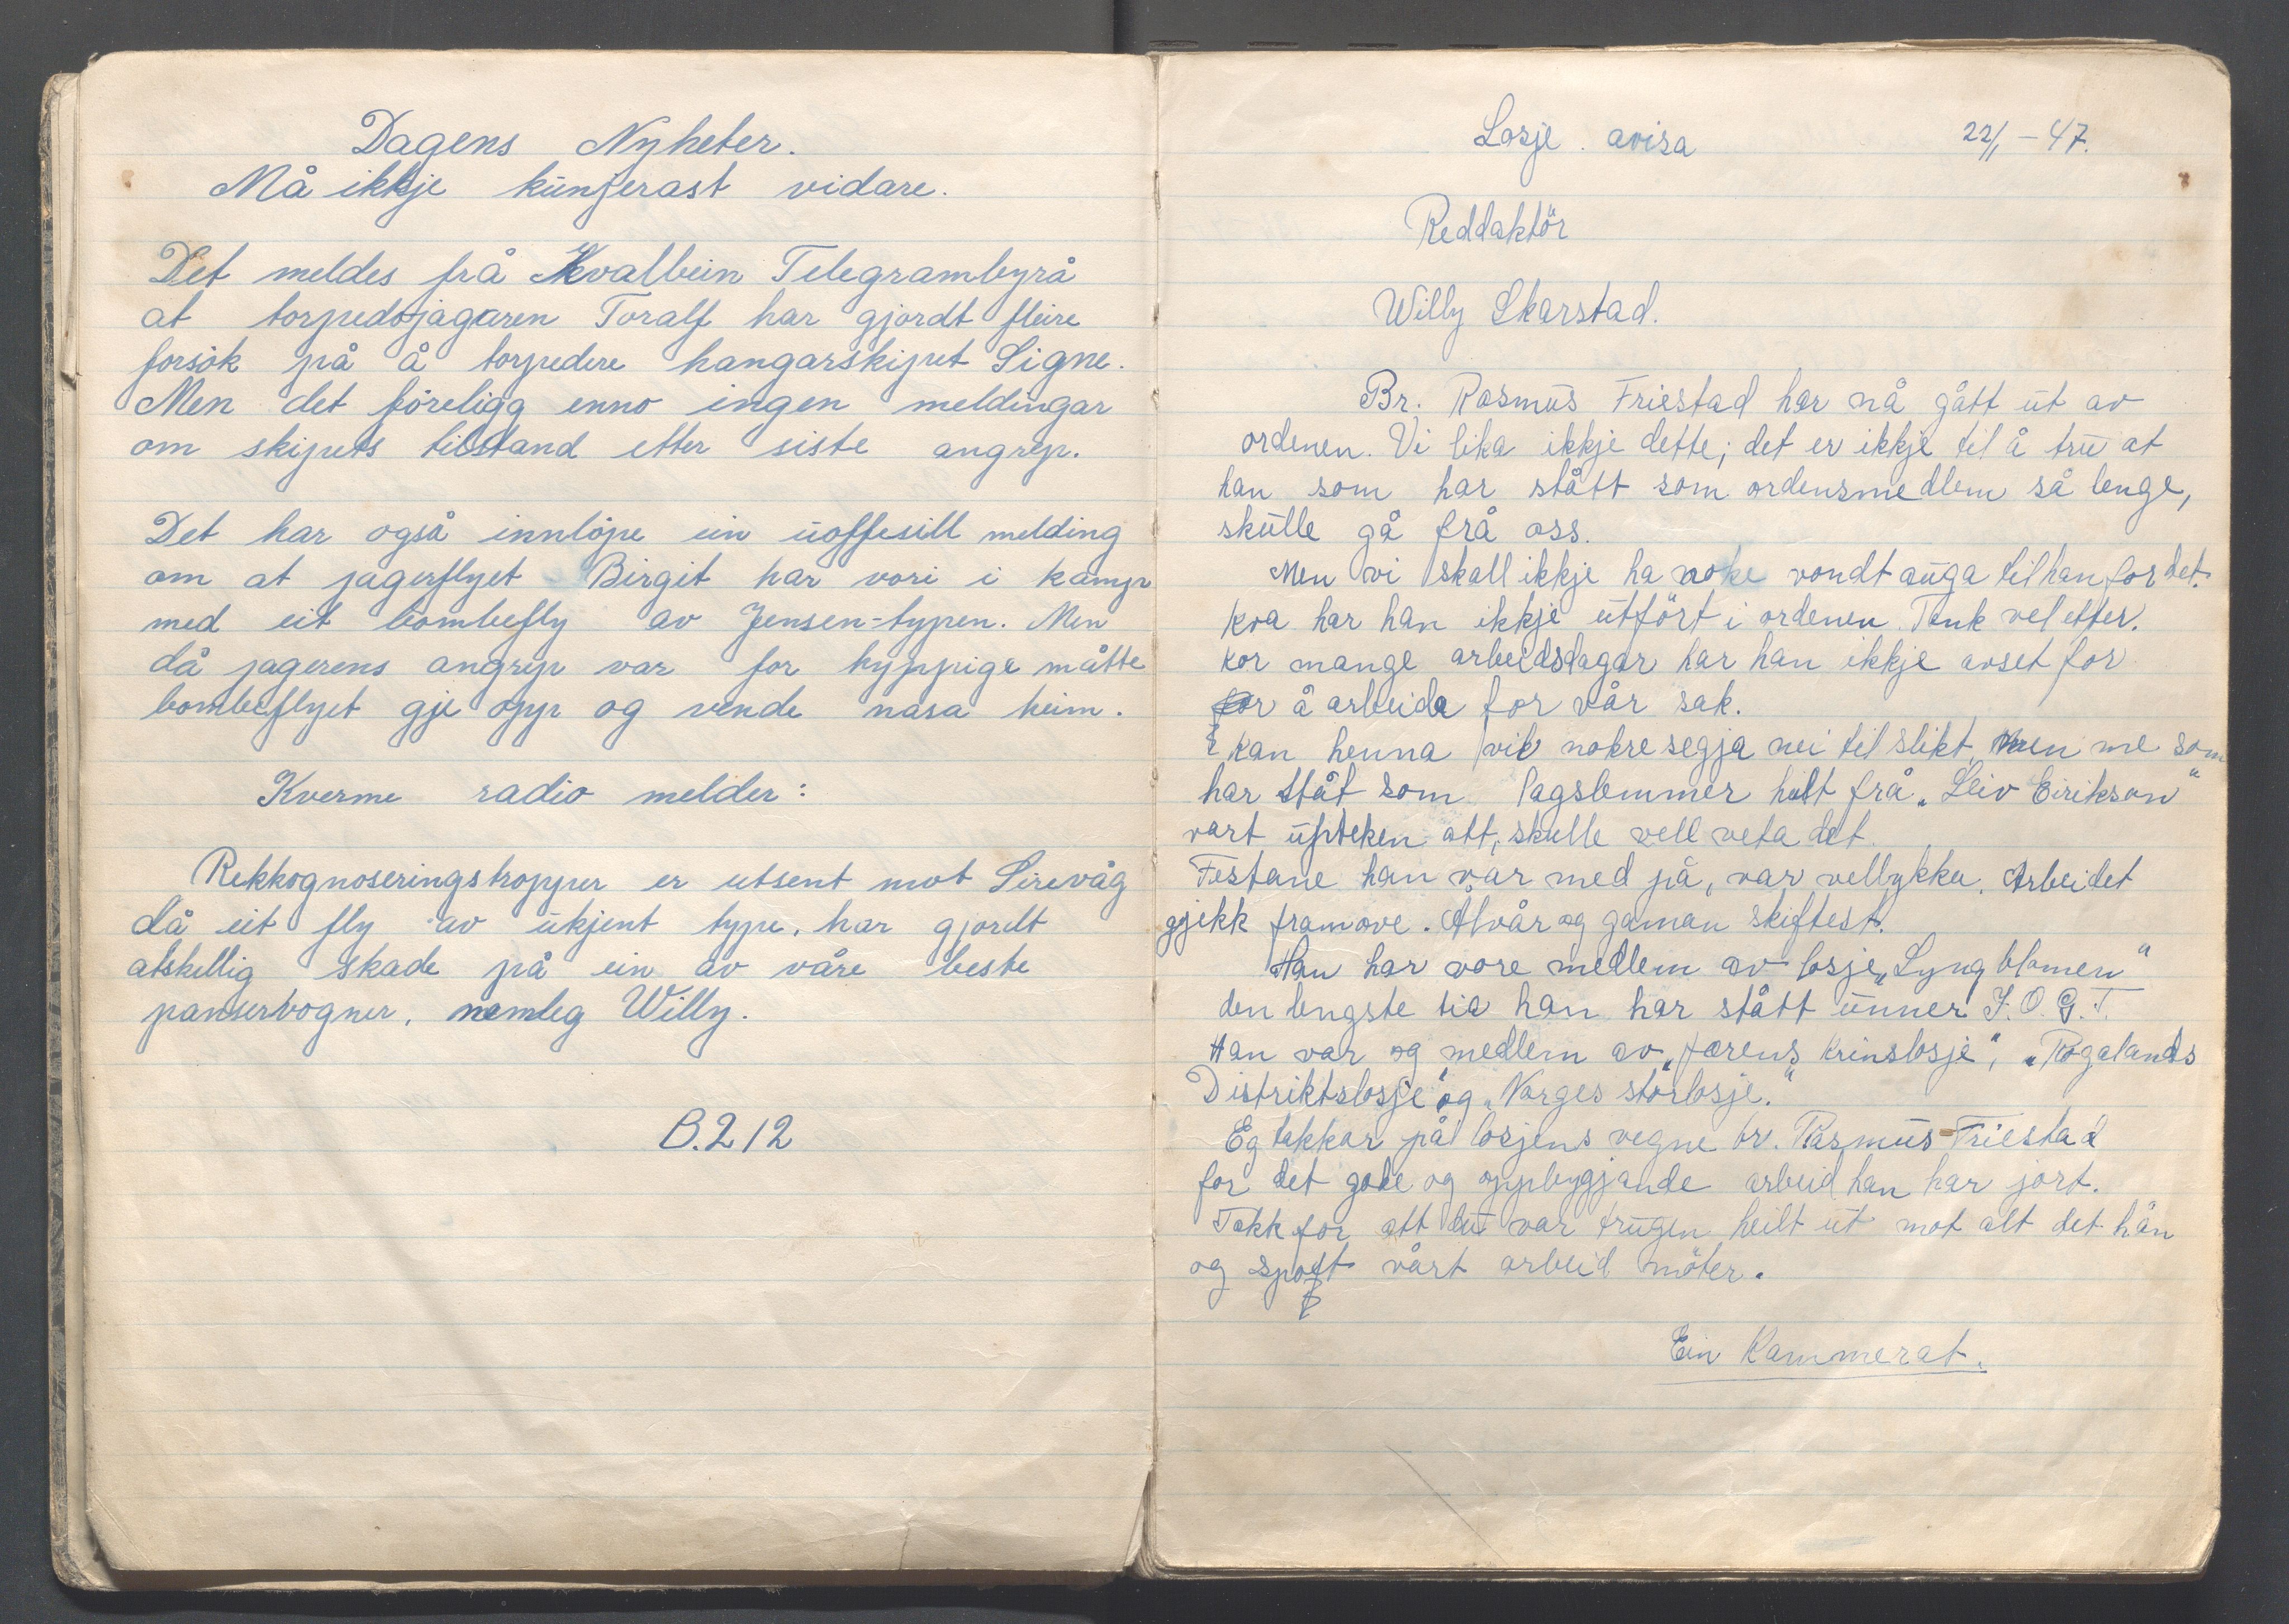 Dagens Nyheter.
Må ikkje kunjerast vidare.
Det meldes frå Kvalbein Telegrambyrå
at torpedojagaren Toralf har gjordt fleire
forsök på å torpedere hangarskipet Signe.
Men det föreligg enno ingen meldingar
om skipets tilstand etter siste angrep.
Det har også innlöpe ein uoffesill melding
om at jagerflyet Birgit har vori i kamp
med eit bombefly av Jensen-typen. Men
då jagerens angrep var for hyppige måtte
bombeflyet gje opp og vende nasa heim.
Kverme radio melder:
Rekkognoseringstropper er utsent mot Sirevåg
då eit fly av ukjent type, har gjordt
atskellig skade på ein av våre beste
panservogner, nemleg Willy.
B.212
Losje. avisa 22/1-47.
Reddaktör
Willy Skarstad.
Br. Rasmus Friestad har nå gått ut av
ordenen. Vi lika ikkje dette; det er ikkje til å tru at
han som har stått som ordensmedlem så lenge,
skulle gå frå oss.
Men vi skall ikkje ha noke vondt auga til han for det.
Kva har han ikkje utfört i ordenen. Tenk vel etter.
Kor mange arbeidsdagar har han ikkje avset for
for å arbeida for vår sak.
Kan henna vil nokre segja nei til slikt, men me som
har ståt som lagslemmer heilt frå "Leiv Eirikson"
vart upteken att, skulle vell veta det.
Festane han var med på, var vellykka. Arbeidet
gjekk framove. Alvår og gaman skiftest.
Han har vore medlem av losje "Lyngblomen"
den lengste tia han har stått unner I.O.G.T.
Han var og medlem av "Jærens Krinslosje", "Rogalands
Distriktslosje" og "Norges storlosje."
Eg takkar på losjens vegne br. Rasmus Friestad
for det gode og oppbygjande arbeid han har jort.
Takk for att du var trugen heilt ut mot alt det hån
og spott vårt arbeid möter.
Ein Kammerat.